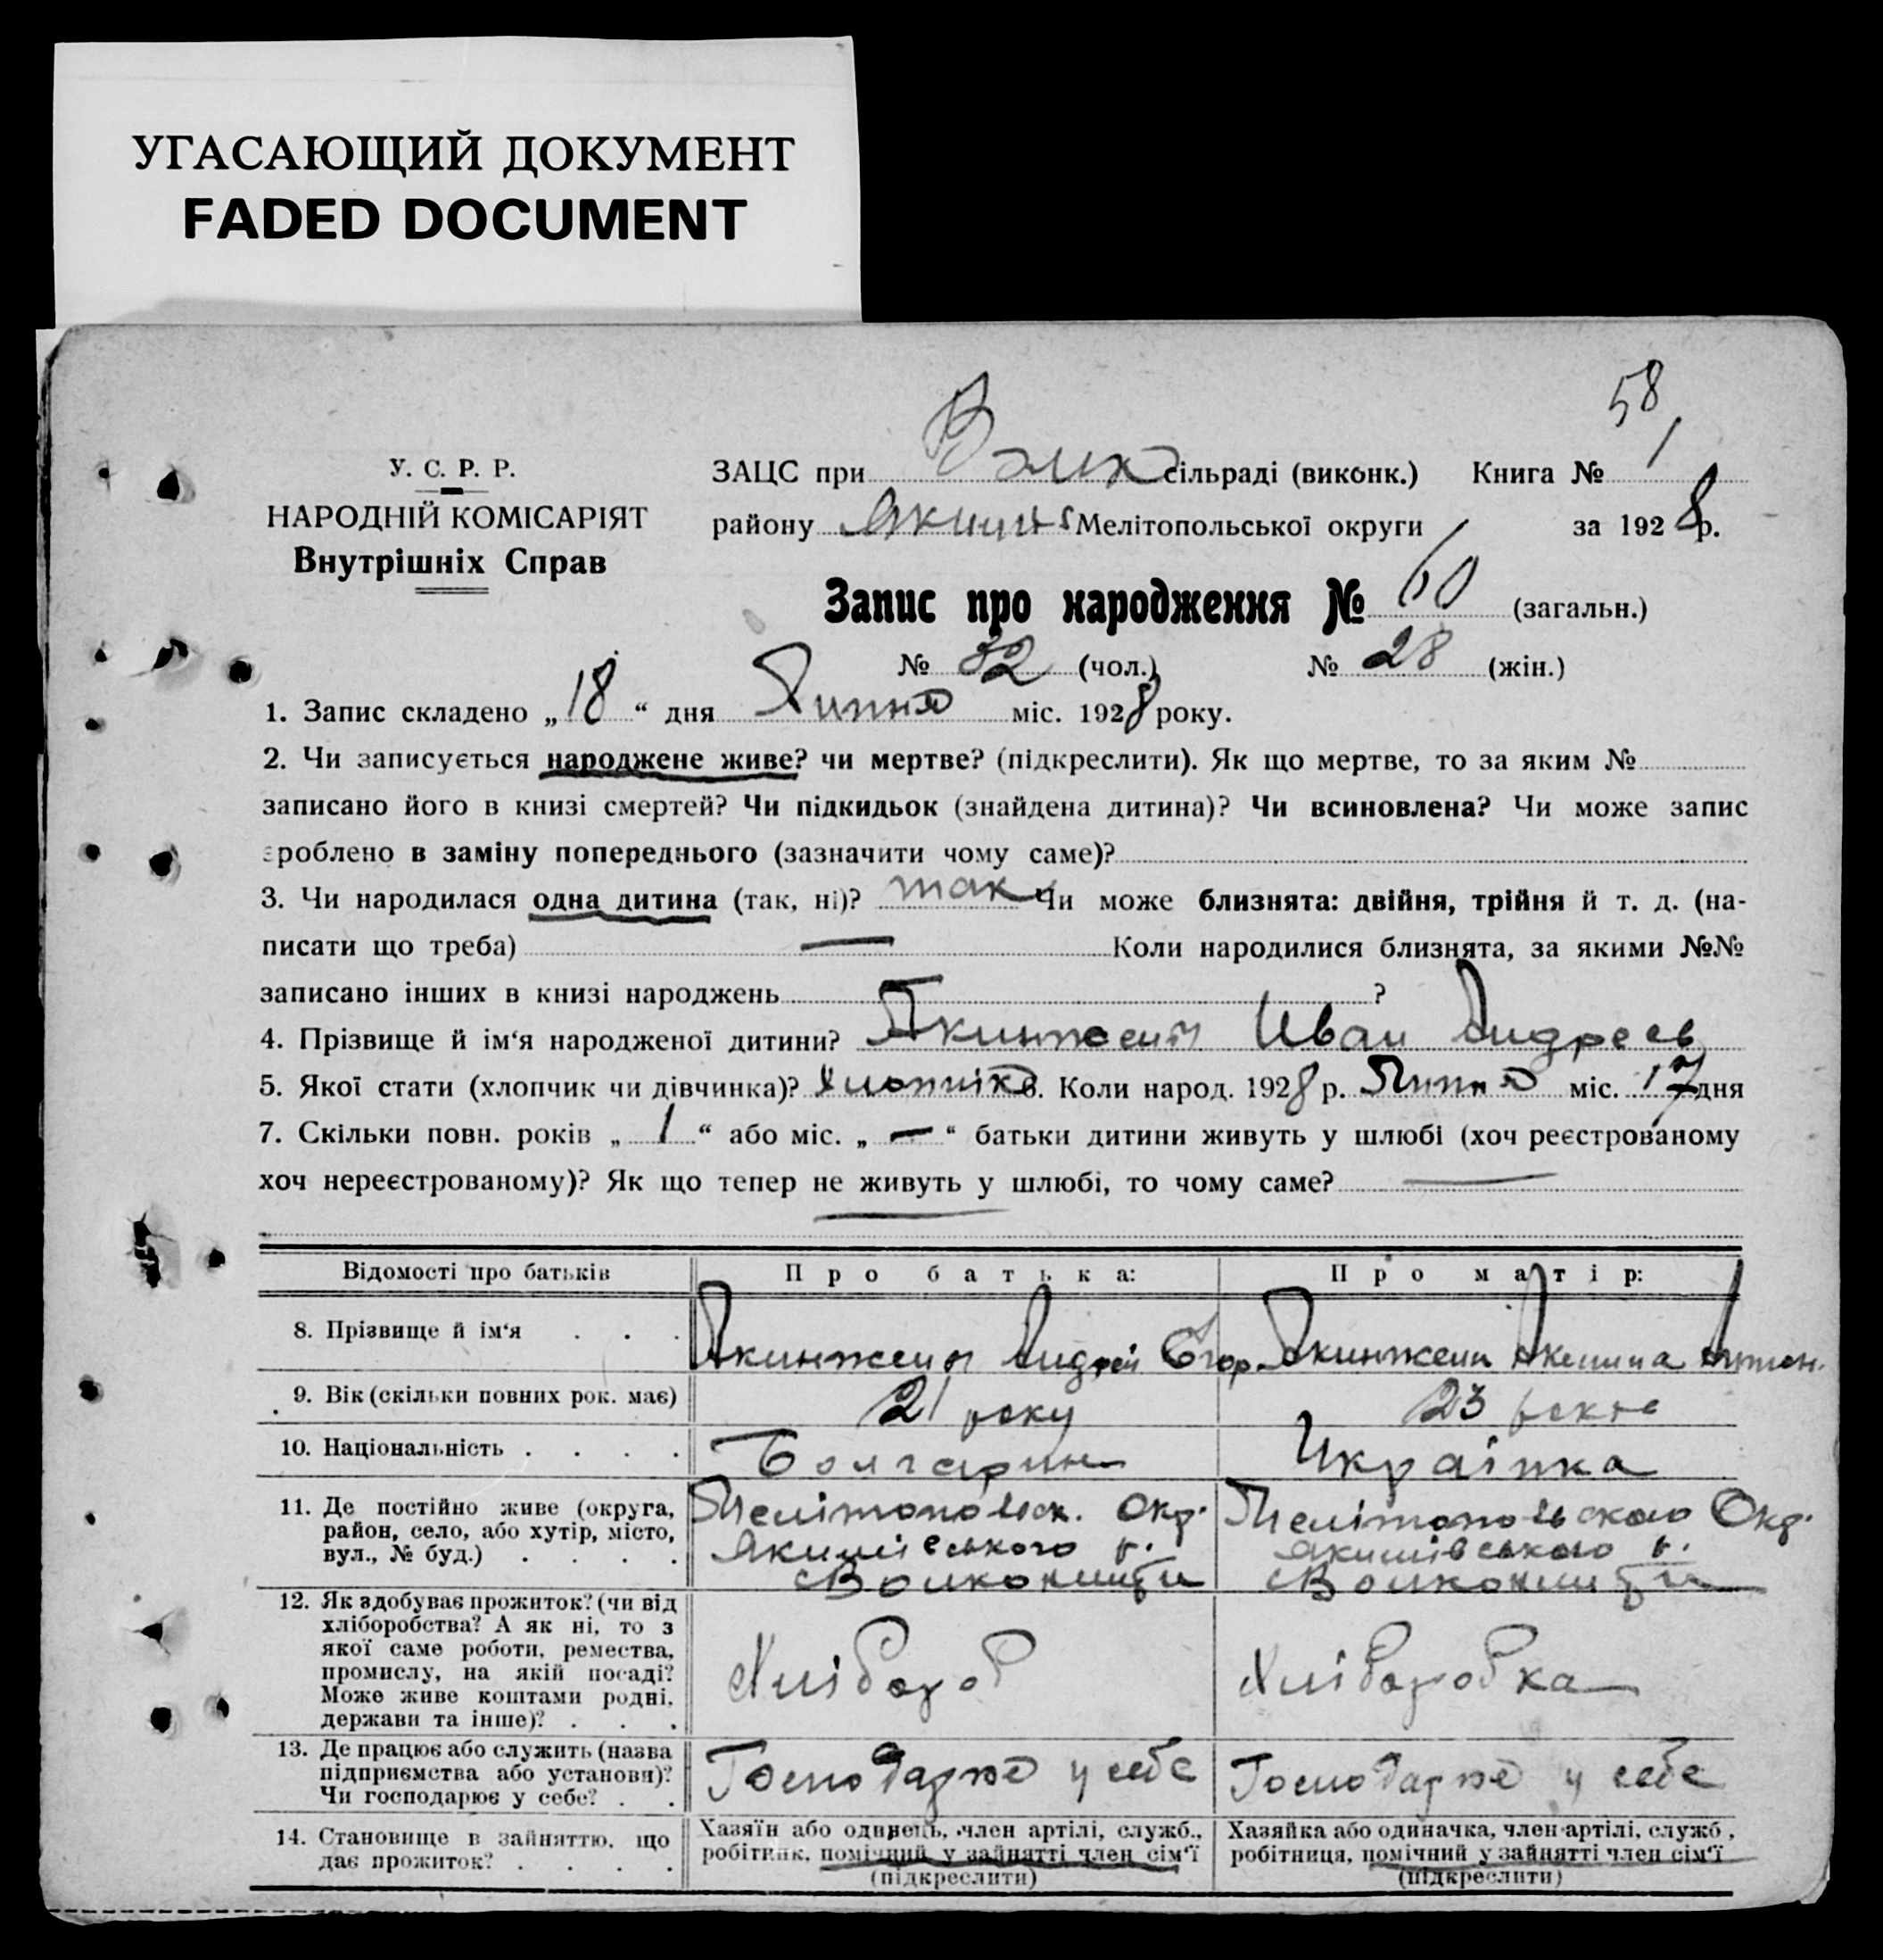 УГАСАЮЩИЙ ДОКУМЕНТ
FADED DOCUMENT
58
У. С. Р. Р.
НАРОДНІЙ КОМІСАРІЯТ
Внутрішніх Справ
ЗАЦС при Волк сільраді (виконк.) Книга № 1
району Якимів Мелітопольської округи за 1928 р.
Запис про народження № 60 (загальн.)
№ 32 (чол.) № 28 (жін.)
1. Запис складено „18“ дня Липня міс. 1928 року.
2. Чи записується народжене живе? чи мертве? (підкреслити). Як що мертве, то за яким №
записано його в книзі смертей? Чи підкидьок (знайдена дитина)? Чи всиновлена? Чи може запис
зроблено в заміну попереднього (зазначити чому саме)?
3. Чи народилася одна дитина (так, ні)? так Чи може близнята: двійня, трійня й т. д. (на-
писати що треба) — Коли народилися близнята, за якими №№
записано інших в книзі народжень ?
4. Прізвище й ім‘я народженої дитини? Акинжели Иван Андреев
5. Якої стати (хлопчик чи дівчинка)? Хлопчік 6. Коли народ. 1928 р. Липня міс. 17 дня
7. Скільки повн. років „1“ або міс. „—“ батьки дитини живуть у шлюбі (хоч реєстрованому
хоч нереєстрованому)? Як що тепер не живуть у шлюбі, то чому саме? —
Відомості про батьків Про батька: Про матір:
8. Прізвище й ім‘я . . . Акинжели Андрей Егор. Акинжели Акелина Антон.
9. Вік (скільки повних рок. має) 21 року 23 роки
10. Національність . . . . Болгарин Українка
11. Де постійно живе (округа, Мелітопольск. Окр. Мелітопольского Окр.
район, село, або хутір, місто, Якимівського р. Якимівського р.
вул., № буд.) . . . . с Волконешти с Волконешти
12. Як здобуває прожиток? (чи від
хліборобства? А як ні, то з
якої саме роботи, ремества,
промислу, на якій посаді? Хлібороб Хліборобка
Може живе коштами родні,
держави та інше)? . . .
13. Де працює або служить (назва
підприємства або установи)? Господарює у себе Господарює у себе
Чи господарює у себе? . .
14. Становище в зайняттю, що Хазяїн або одинець, член артілі, служб., Хазяйка або одиначка, член артілі, служб,
дає прожиток? . . . . робітник, помічний у зайнятті член сім‘ї робітниця, помічний у зайнятті член сім‘ї
(підкреслити) (підкреслити)